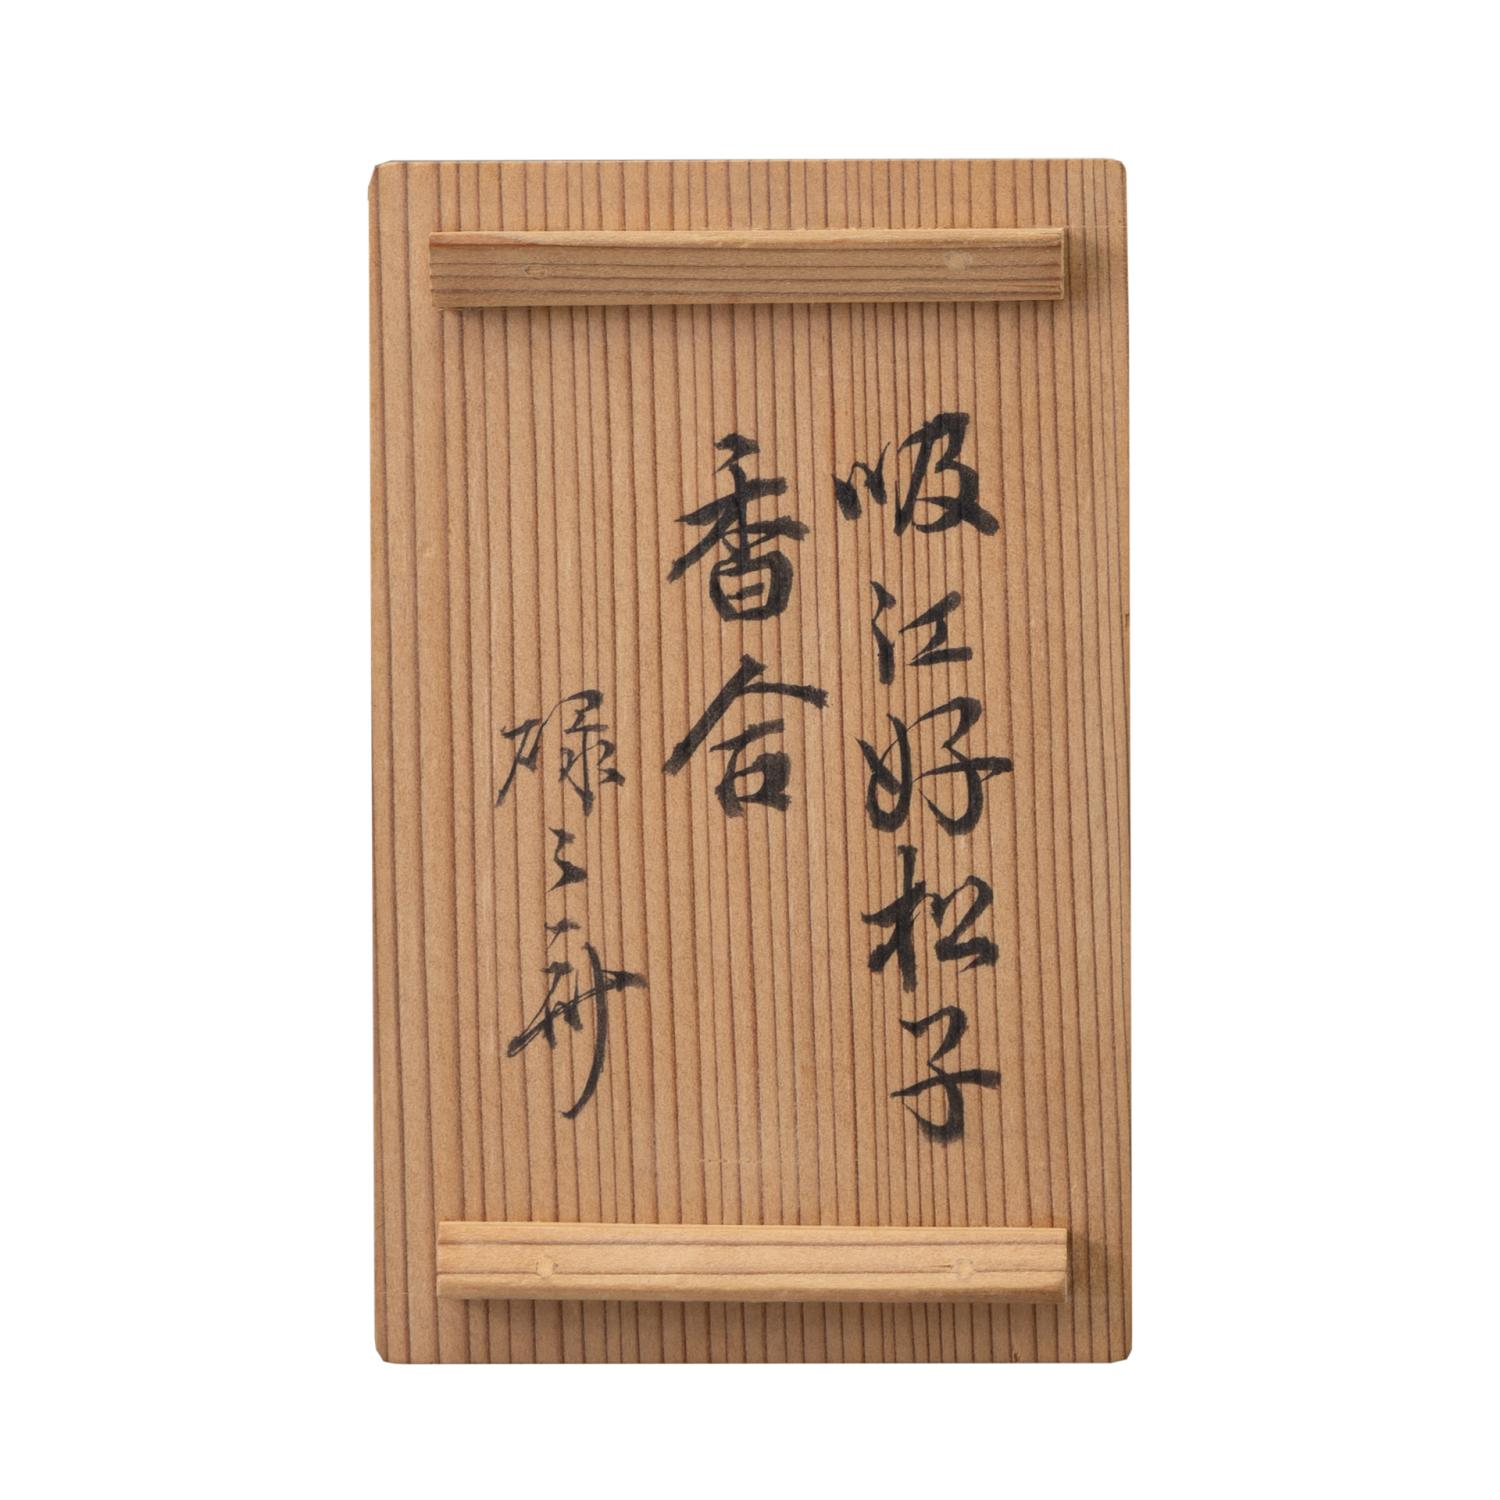 吸江好松子
香合
碌々斎